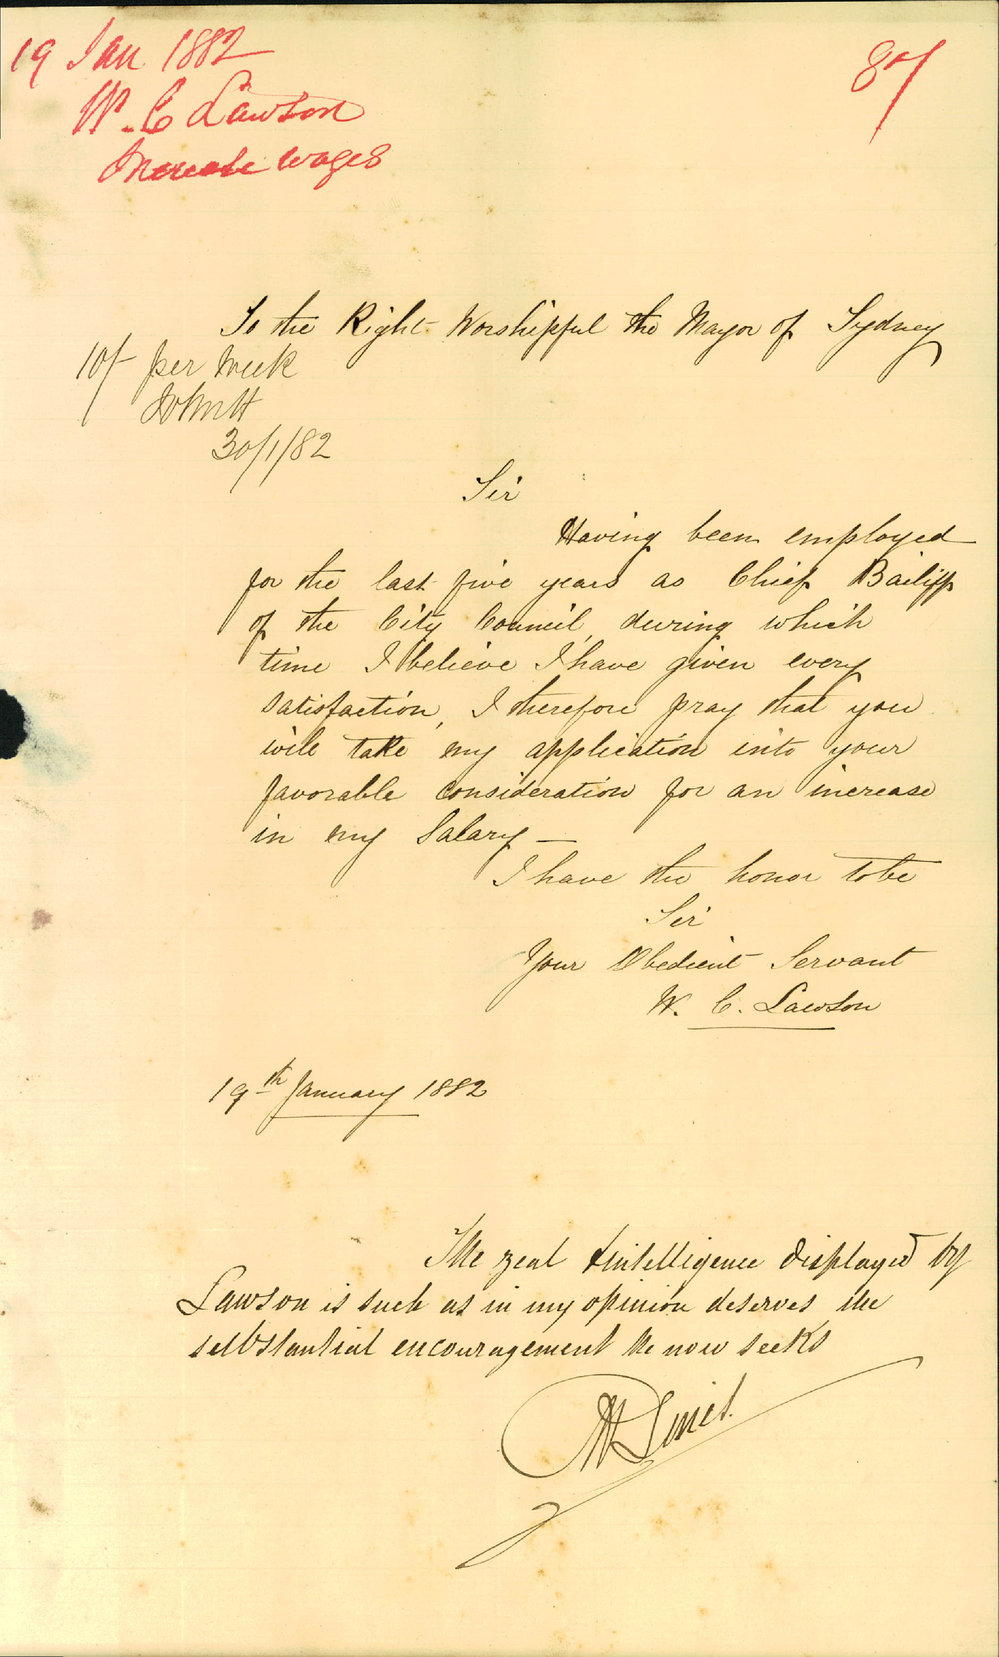 19 Jan 1882
W. C Lawson
Increase wages
87
To the Right Worshipful the Mayor of Sydney
10/- per Week
30/1/82
Sir
Having been employed
for the last five years as Chief Bailiff
of the City Council, during which
time I believe I have given every
satisfaction, I therefore pray that you
will take my application into your
favorable consideration for an increase
in my Salary —
I have the honor to be
Sir
Your Obedient Servant
W. C. Lawson
19th January 1882
The zeal & intelligence displayed by
Lawson is such as in my opinion deserves the
substantial encouragement he now seeks